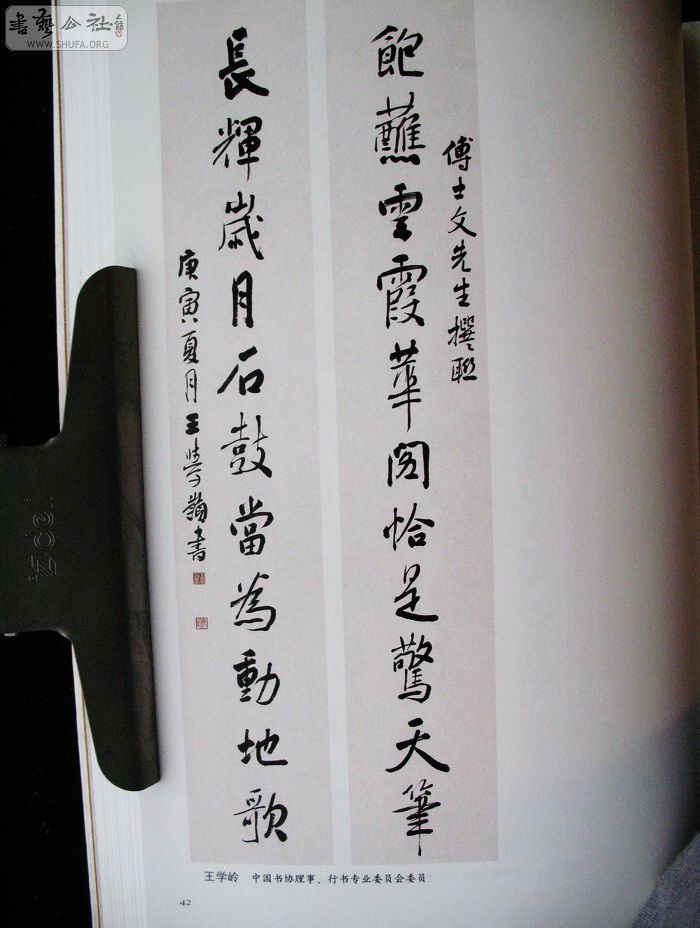 書藝公社
WWW.SHUFA.ORG
飽蘸雲霞華閣恰是驚天筆
傅士文先生撰聯
長輝歲月石鼓當為動地歌
庚寅夏月王學嶺書
王学岭 中国书协理事、行书专业委员会委员
42